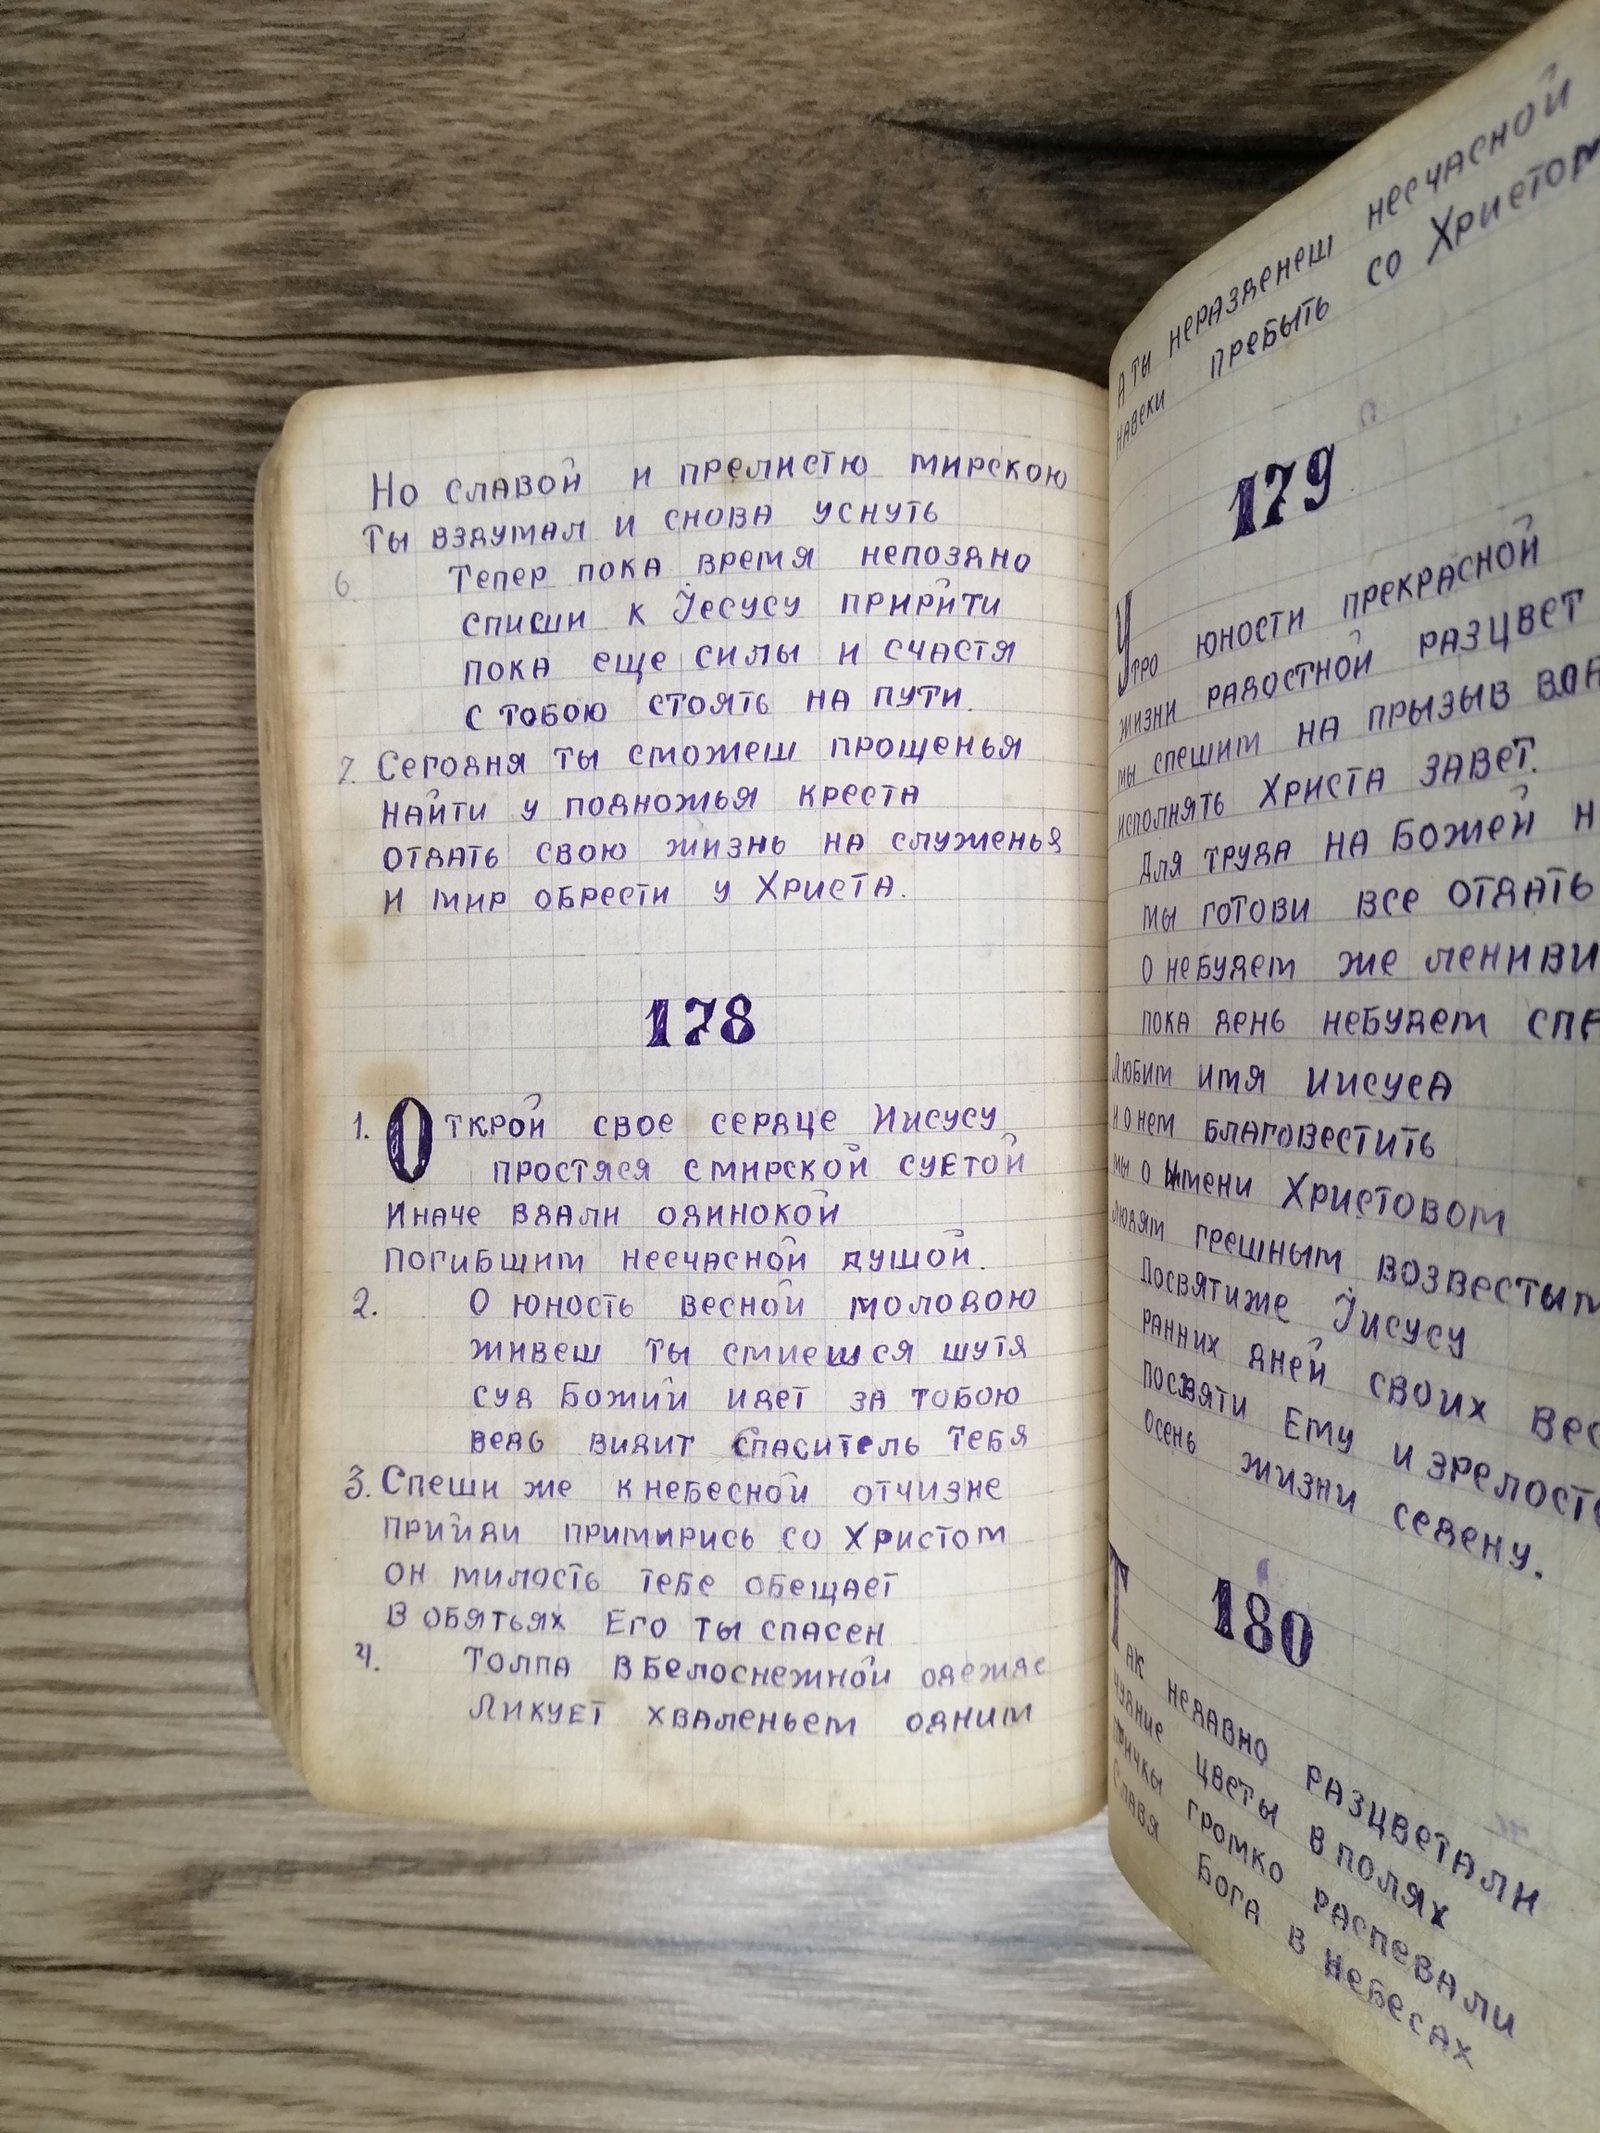 Но славой и прелистю мирскою
Ты вздумал и снова уснуть
6. Тепер пока время непоздно
спиши к Іесусу прирйти
пока еще силы и счастя
с тобою стоять на пути.
7. Сегодня ты сможеш прощенья
найти у подножья креста
отдать свою жизнь на служенья
И мир обрести у Христа.
178
1. Открой свое сердце Иисусу
простяся с мирской суетой
Иначе вдали одинокой
погибшим несчасной душой.
2. О юность весной молодою
живеш ты смиешся шутя
суд Божий идет за тобою
ведь видит спаситель Тебя
3. Спеши же к небесной отчизне
прийди примирись со Христом
он милость тебе обещает
В обятьях Его ты спасен
4. Толпа в белоснежной одежде
Ликует хваленьем одним
А ты неразденеш несчасной
навеки пребыть со Христом
179
Утро юности прекрасной
жизни радостной разцвет
мы спешим на призыв
исполнять Христа завет.
Для труда на Божей
мы готови все отдать
О небудем же лениви
пока день небудем
Любим имя Иисуса
и о нем благовестить
мы о Имени Христовом
людям грешным возвестым
Посвятиже Іисусу
ранних дней своих
посвяти Ему и
осень жизни седену.
180
Так недавно разцветали
чудние цветы в полях
птичкы громко распевали
Славя Бога в небесах